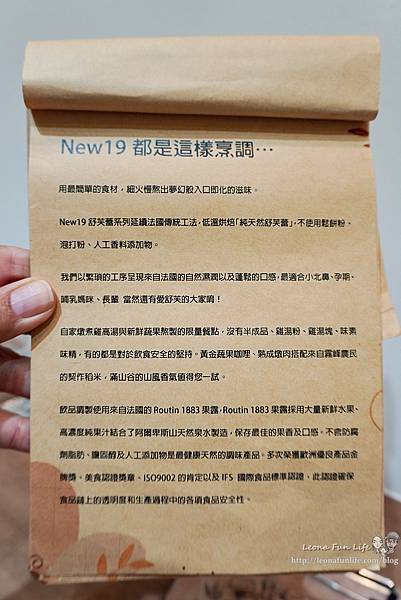 New19 都是這樣烹調…
用最簡單的食材，細火慢熬出夢幻般入口即化的滋味。
New19 舒芙蕾系列延續法國傳統工法，低溫烘焙「純天然舒芙蕾」，不使用鬆餅粉、
泡打粉、人工香料添加物。
我們以繁瑣的工序呈現來自法國的自然濕潤以及蓬鬆的口感，最適合小北鼻、孕期、
哺乳媽咪、長輩 當然還有愛舒芙的大家唷！
自家燉煮雞高湯與新鮮蔬果熬製的限量餐點，沒有半成品、雞湯粉、雞湯塊、味素
味精，有的都是對於飲食安全的堅持。黃金蔬果咖哩、熟成燉肉搭配來自霧峰農民
的契作稻米，滿山谷的山風香氣值得您一試。
飲品調製使用來自法國的 Routin 1883 果露，Routin 1883 果露採用大量新鮮水果、
高濃度純果汁結合了阿爾卑斯山天然泉水製造，保存最佳的果香及口感。不含防腐
劑脂肪、膽固醇及人工添加物是最健康天然的調味產品。多次榮獲歐洲優良產品金
牌獎。美食認證獎章、ISO9002 的肯定以及 IFS 國際食品標準認證，此認證確保
食品鏈上的透明度和生產過程中的各項食品安全性。
Leona Fun Life
http://leonafunlife.com/blog